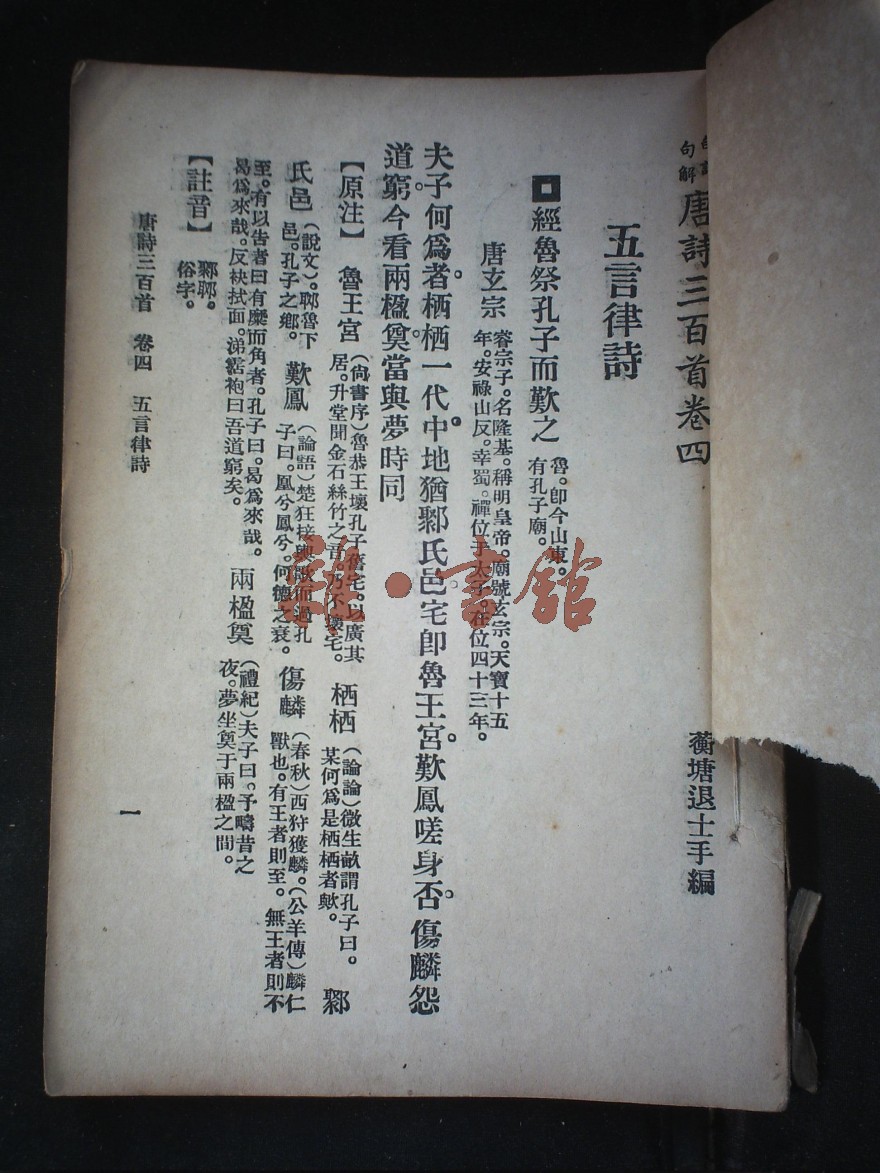 句解唐詩三百首卷四
蘅塘退士手編
五言律詩
經魯祭孔子而歎之
魯。即今山東。
有孔子廟。
唐玄宗
睿宗子。名隆基。稱明皇帝。廟號玄宗。天寶十五
年。安祿山反。幸蜀。禪位于太子。在位四十三年。
夫子何爲者。栖栖一代中。地猶鄹氏邑。宅即魯王宮。歎鳳嗟身否。傷麟怨
道窮。今看兩楹奠。當與夢時同
【原注】 魯王宮
(尙書序)魯恭王壞孔子舊宅。以廣其
居。升堂聞金石絲竹之音。乃不壞宅。
栖栖
(論論)微生畝謂孔子曰。
某何爲是栖栖者歟。
鄹
氏邑
(說文)。鄹魯下
邑。孔子之鄉。
歎鳳
(論語)楚狂接輿歌而過孔
子曰。凰兮鳳兮。何德之衰。
傷麟
(春秋)西狩獲麟。(公羊傳)麟仁
獸也。有王者則至。無王者則不
至。有以告者曰有麇而角者。孔子曰。曷爲來哉。
曷爲來哉。反袂拭面。涕霑袍曰吾道窮矣。
兩楹奠
(禮紀)夫子曰。予疇昔之
夜。夢坐奠于兩楹之間。
【註音】
鄹郰。
俗字。
唐詩三百首 卷四 五言律詩
一
雜·書館